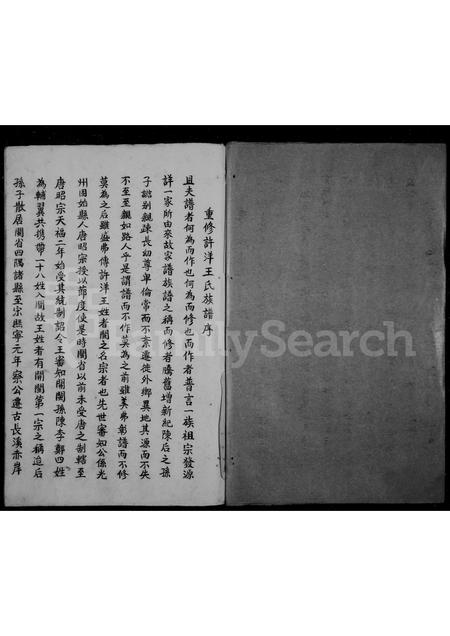 重修許洋王氏族譜序
且夫譜者何為而作也何為而修也而作者普言一族祖宗發源
詳一家所由來故家譜族譜之稱而修者騰舊增新紀陳后之孫
子誼别親疎長幼尊卑倫常而不紊遷徙外鄉異地其源而不失
不至至親如路人乎是謂譜而不作莫為之前雖美弗彰譜而不修
莫為之后雖盛弗傳許洋王姓者閩之名宗者也先世審知公係光
州固始縣人唐昭宗授以節度使是時閩省以前未受唐之制轄至
唐昭宗天福二年始受其統制詔令王審知開閩孫陳李鄭四姓
為輔翼共携帶一十八姓入閩故王姓者有開閩第一宗之稱迨后
孫子散居閩省四隅諸縣至宋熙寧元年察公遷古長溪赤岸
FamilySearch